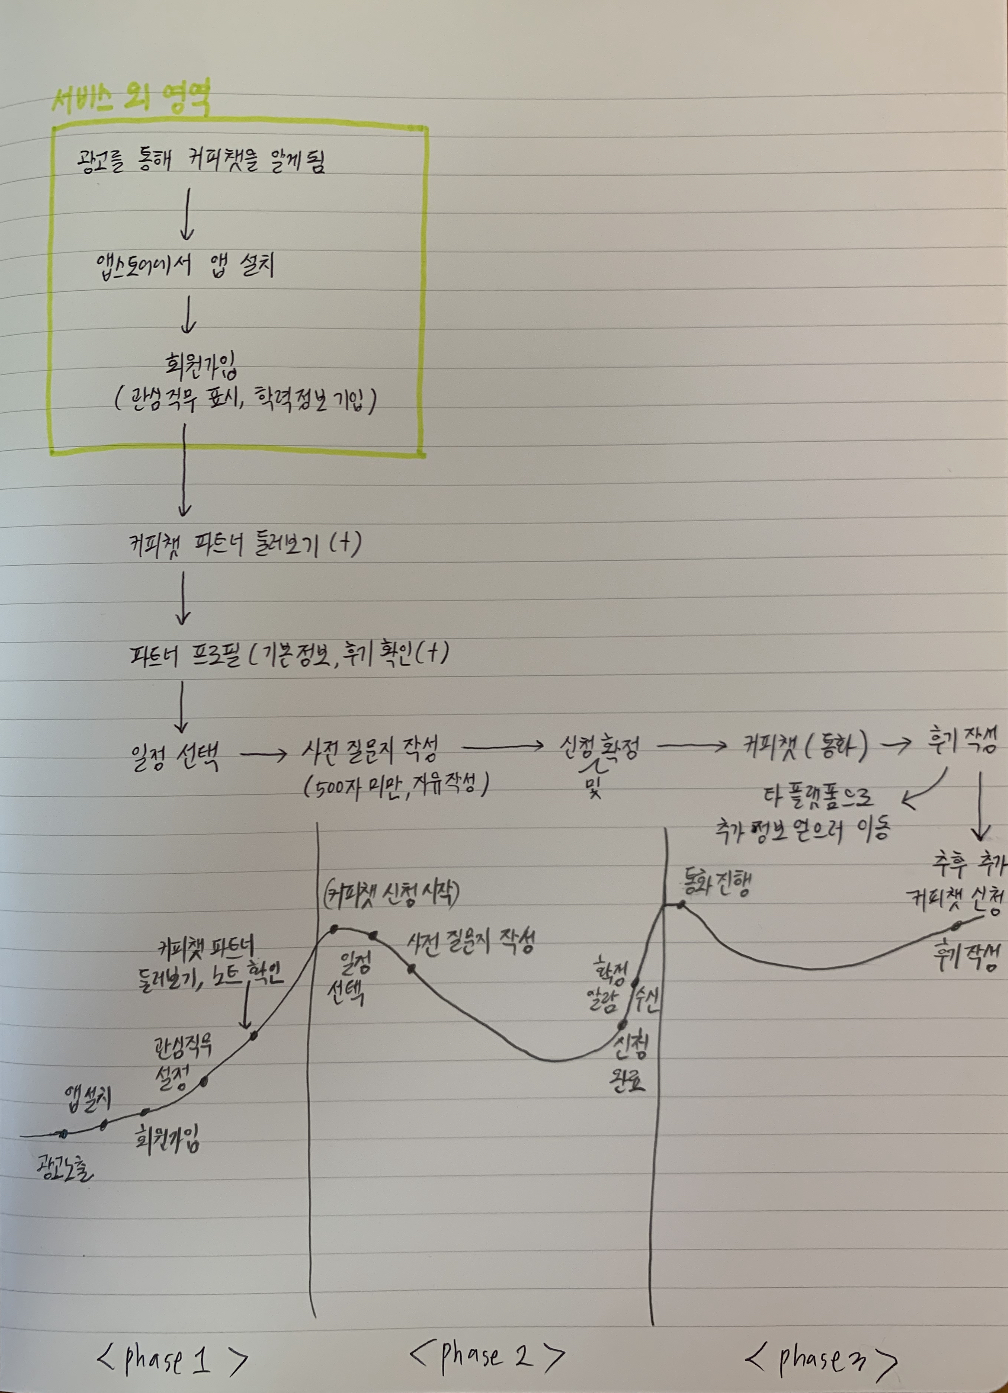 서비스 외 영역
광고를 통해 커피챗을 알게 됨
앱스토어에서 앱 설치
회원가입
(관심직무 표시, 학력정보 기입)
커피챗 파트너 둘러보기 (+)
파트너 프로필 (기본정보, 후기 확인(+)
일정 선택 → 사전 질문지 작성 → 신청 확정 → 커피챗 (통화) → 후기 작성
(500자 미만, 자유작성)
및
타 플랫폼으로
추가 정보 얻으러 이동
추후 추가
커피챗 신청
(커피챗 신청 시작)
통화 진행
커피챗 파트너
둘러보기, 노트 확인
일정
선택
사전 질문지 작성
확정
알람 수신
후기 작성
관심직무
설정
신청
완료
앱 설치
회원가입
광고노출
<phase 1>
<phase 2>
<phase 3>